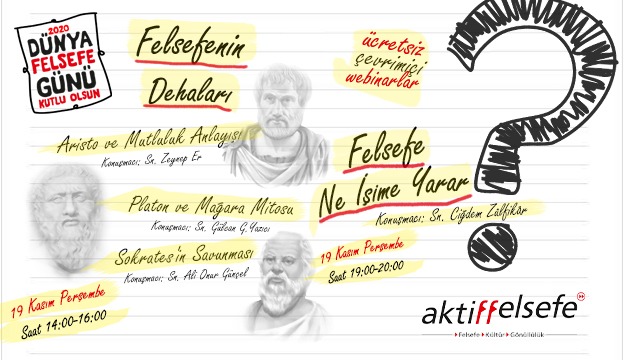 2020
DÜNYA
FELSEFE
GÜNÜ
KUTLU OLSUN
Felsefenin
Dehaları
Aristo ve Mutluluk Anlayışı
Konuşmacı: Sn. Zeynep Er
Platon ve Mağara Mitosu
Konuşmacı: Sn. Gülcan G.Yazıcı
Sokrates'in Savunması
Konuşmacı: Sn. Ali Onur Günçel
19 Kasım Perşembe
Saat 14:00-16:00
ücretsiz
çevrimiçi
webinarlar
Felsefe
Ne İşime Yarar
Konuşmacı: Sn. Çiğdem Zülfikâr
19 Kasım Perşembe
Saat 19:00-20:00
?
aktiffelsefe
Felsefe Kültür Gönüllülük